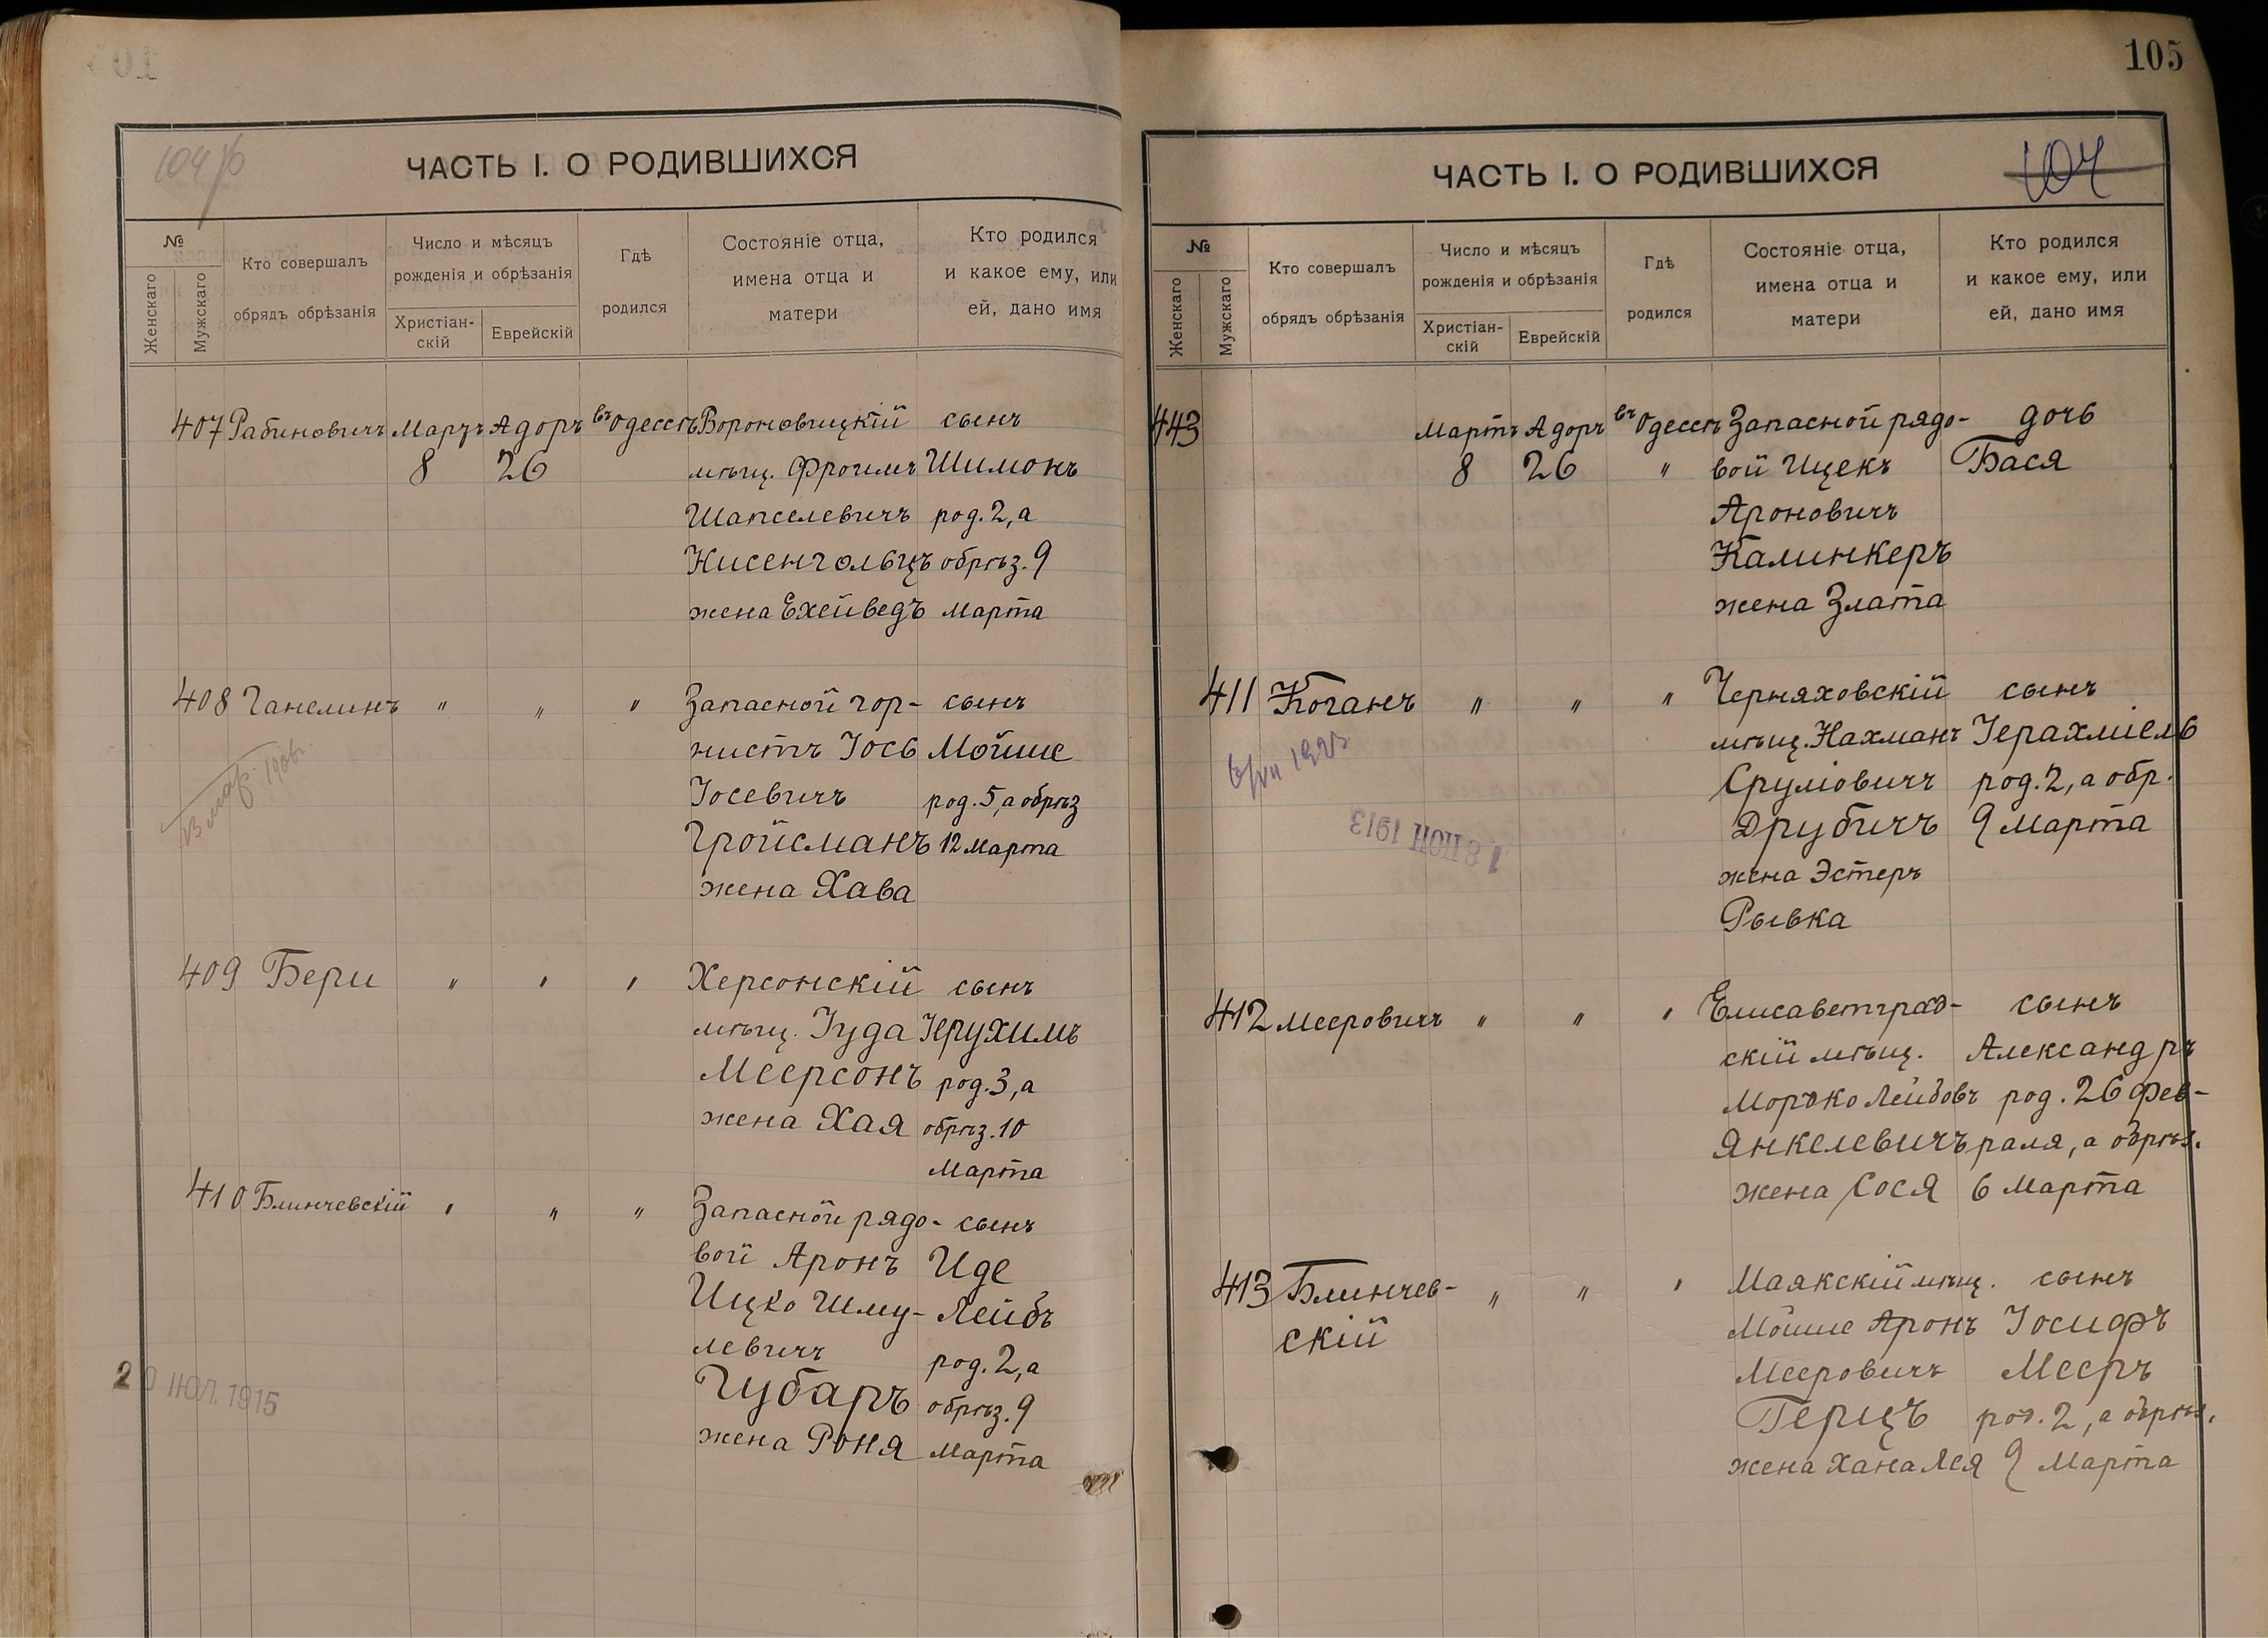 105
ЧАСТЬ I. О РОДИВШИХСЯ
№
Женскаго
Мужскаго
Кто совершалъ
обрядъ обрѣзанія
Число и мѣсяцъ
рожденія и обрѣзанія
Христіан-
скій
Еврейскій
Гдѣ
родился
Состояніе отца,
имена отца и
матери
Кто родился
и какое ему, или
ей, дано имя
407 Рабиновичъ Мартъ Адоръ въ Одессѣ Вороновицкій сынъ
8 26 мѣщ. Фроимъ Шимонъ
Шапселевичъ род. 2, а
Нисенгольцъ обрѣз. 9
жена Ехейведъ Марта
408 Ганелинъ " " " Запасной гор- сынъ
нистъ Іось Мойше
Іосевичъ род. 5, а обрѣз
Гройсманъ 12 Марта
жена Хава
409 Бери " " " Херсонскій сынъ
мѣщ. Іуда Іерухимъ
Меерсонъ род. 3, а
жена Хая обрѣз. 10
Марта
410 Блинчевскій " " " Запасной рядо- сынъ
вой Аронъ Иде
Ицко Шму- Лейбъ
левичъ род. 2, а
Губаръ обрѣз. 9
жена Роня Марта
20 ІЮЛ. 1915
ЧАСТЬ I. О РОДИВШИХСЯ
104
№
Женскаго
Мужскаго
Кто совершалъ
обрядъ обрѣзанія
Число и мѣсяцъ
рожденія и обрѣзанія
Христіан-
скій
Еврейскій
Гдѣ
родился
Состояніе отца,
имена отца и
матери
Кто родился
и какое ему, или
ей, дано имя
443 Мартъ Адоръ въ Одессѣ Запасной рядо- дочь
8 26 " вой Ицекъ Бася
Ароновичъ
Калинкеръ
жена Злата
411 Коганъ " " " Черняховскій сынъ
мѣщ. Нахманъ Іерахміель
Сруліовичъ род. 2, а обр.
Друбичъ 9 Марта
жена Эстеръ
Рывка
1923
ІЮН 1913
412 Мееровичъ " " " Елисаветград- сынъ
скій мѣщ. Александръ
Морко Лейбовъ род. 26 фев-
Янкелевичъ раля, а обрѣз.
жена Сося 6 Марта
413 Блинчев- " " " Маякскій мѣщ. сынъ
скій Мойше Аронъ Іосифъ
Мееровичъ Мееръ
Герцъ род. 2, а обрѣз.
жена Хана Лея 9 Марта